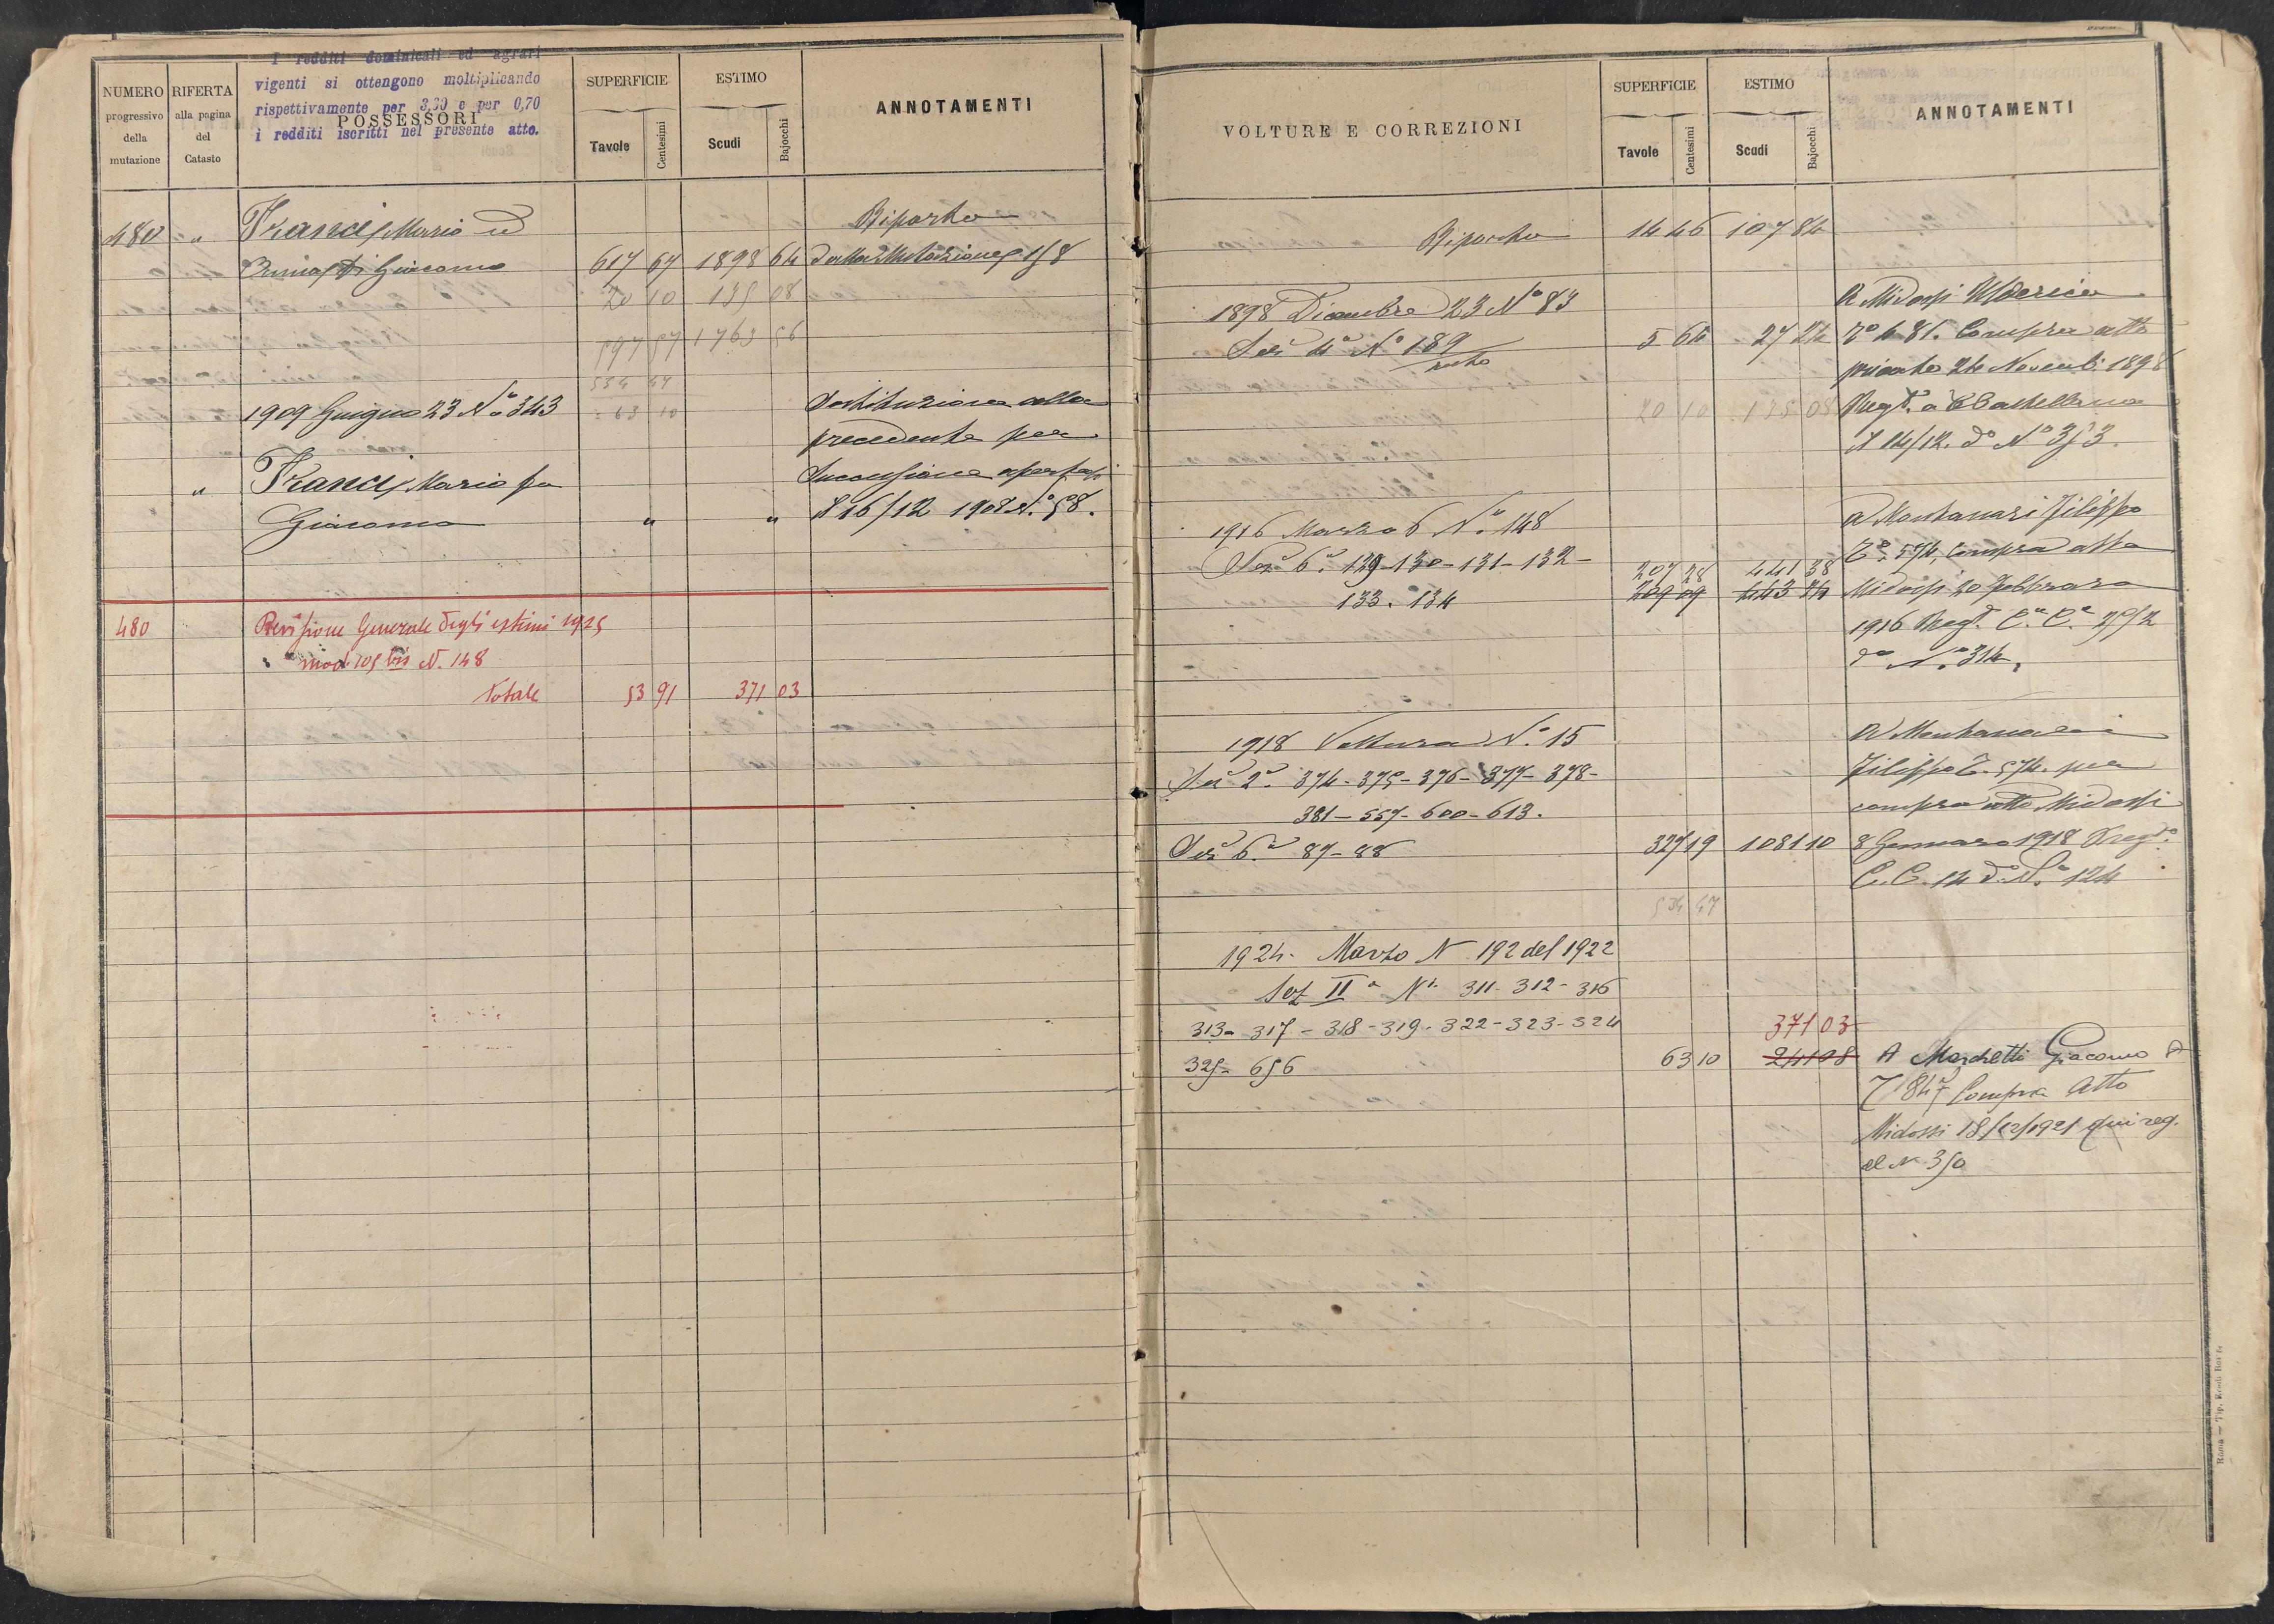 I redditi dominicali ed agrari
vigenti si ottengono moltiplicando
rispettivamente per 3,30 e per 0,70
i redditi iscritti nel presente atto.
NUMERO progressivo della mutazione
RIFERTA alla pagina del Catasto
POSSESSORI
SUPERFICIE
Tavole Centesimi
ESTIMO
Scudi Bajocchi
ANNOTAMENTI
Riporto
480 " Franci Mario ed
di Giacomo 617 67 1898 64 dalla Mutazione 158
20 10 135 08
597 57 1763 56
534 47
1909 Giugno 23 N.° 343 63 10 Sostituzione alla
precedente per
" Franci Mario fu Successione apertasi
Giacomo " " il 16/12 1908 N.° 58.
480 Revisione Generale degli estimi 1925
mod. 105 bis N. 148
Totale 53 91 371 03
VOLTURE E CORREZIONI
SUPERFICIE
Tavole Centesimi
ESTIMO
Scudi Bajocchi
ANNOTAMENTI
Riporto 14 46 107 84
1898 Dicembre 23 N.° 83 A Midossi Ulderico
Sez 4ª N.° 189 5 64 27 24 T.° 481. Compra atto
resto privato 24 Novemb. 1898
20 10 135 08 Regt.° a CCastellana
il 14/12. d.° N.° 353.
1916 Marzo 6 N.° 148 A Montanari Filippo
Sez. 6ª. 129-130-131-132- 207 28 441 38 T.° 574, Compra atto
133. 134 209 09 443 74 Midossi 20 Febbraro
1916 Regt. C.ª C.ª 35/2
d.° N.° 314.
1918 Voltura N.° 15 A Montanari
Sez 2ª. 374-375-376-377-378- Filippo T. 574. per
381-557-600-613. compra atto Midossi
Sez 6.ª 87-88 327 19 1081 10 8 Gennaro 1918 Reg.°
C. C. 14 d.° N.° 124
534 47
1924. Marzo N. 192 del 1922
Sez IIª N.i 311-312-316
313-317-318-319-322-323-324 371 03
325-656 63 10 241 08 A Marchetti Giacomo
T 847 Compra Atto
Midossi 18/12/1921 qui reg.
al N. 350
Roma — Tip.